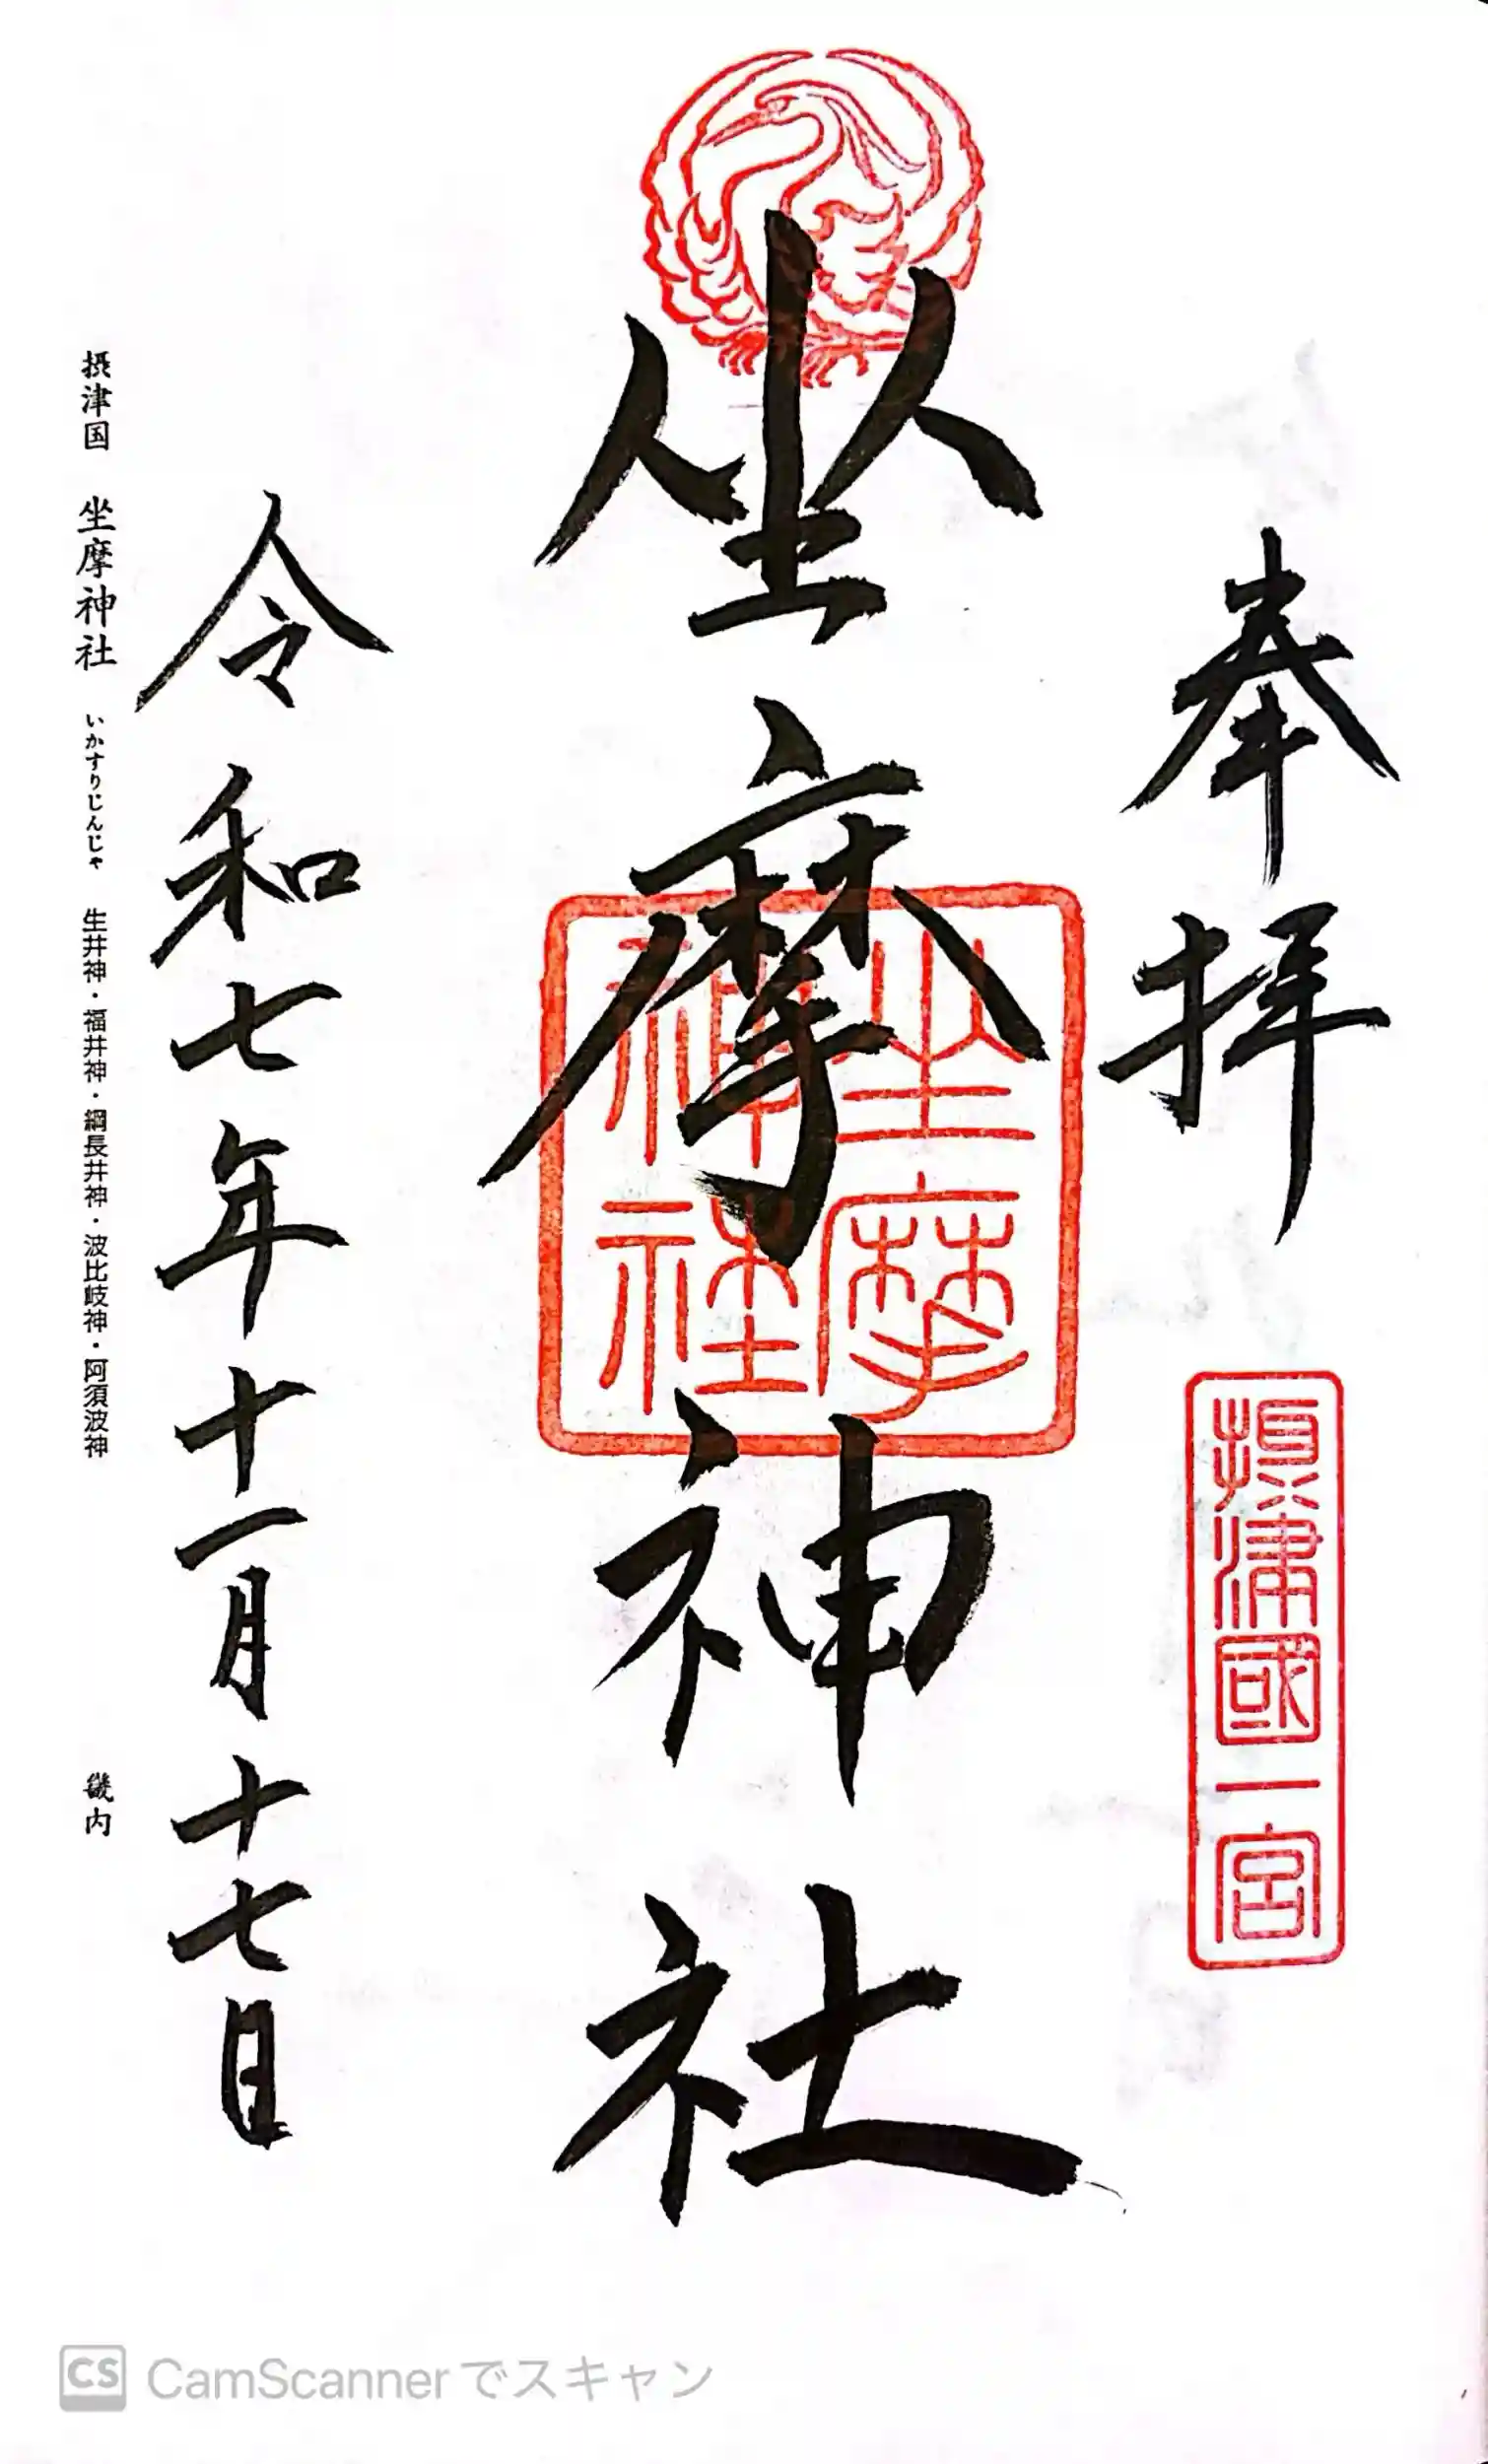 奉拝
摂津國一宮
坐摩神社
坐摩神社
令和七年十一月十七日
摂津国 坐摩神社 いかすりじんじゃ 生井神・福井神・綱長井神・波比岐神・阿須波神 畿内
CS CamScannerでスキャン